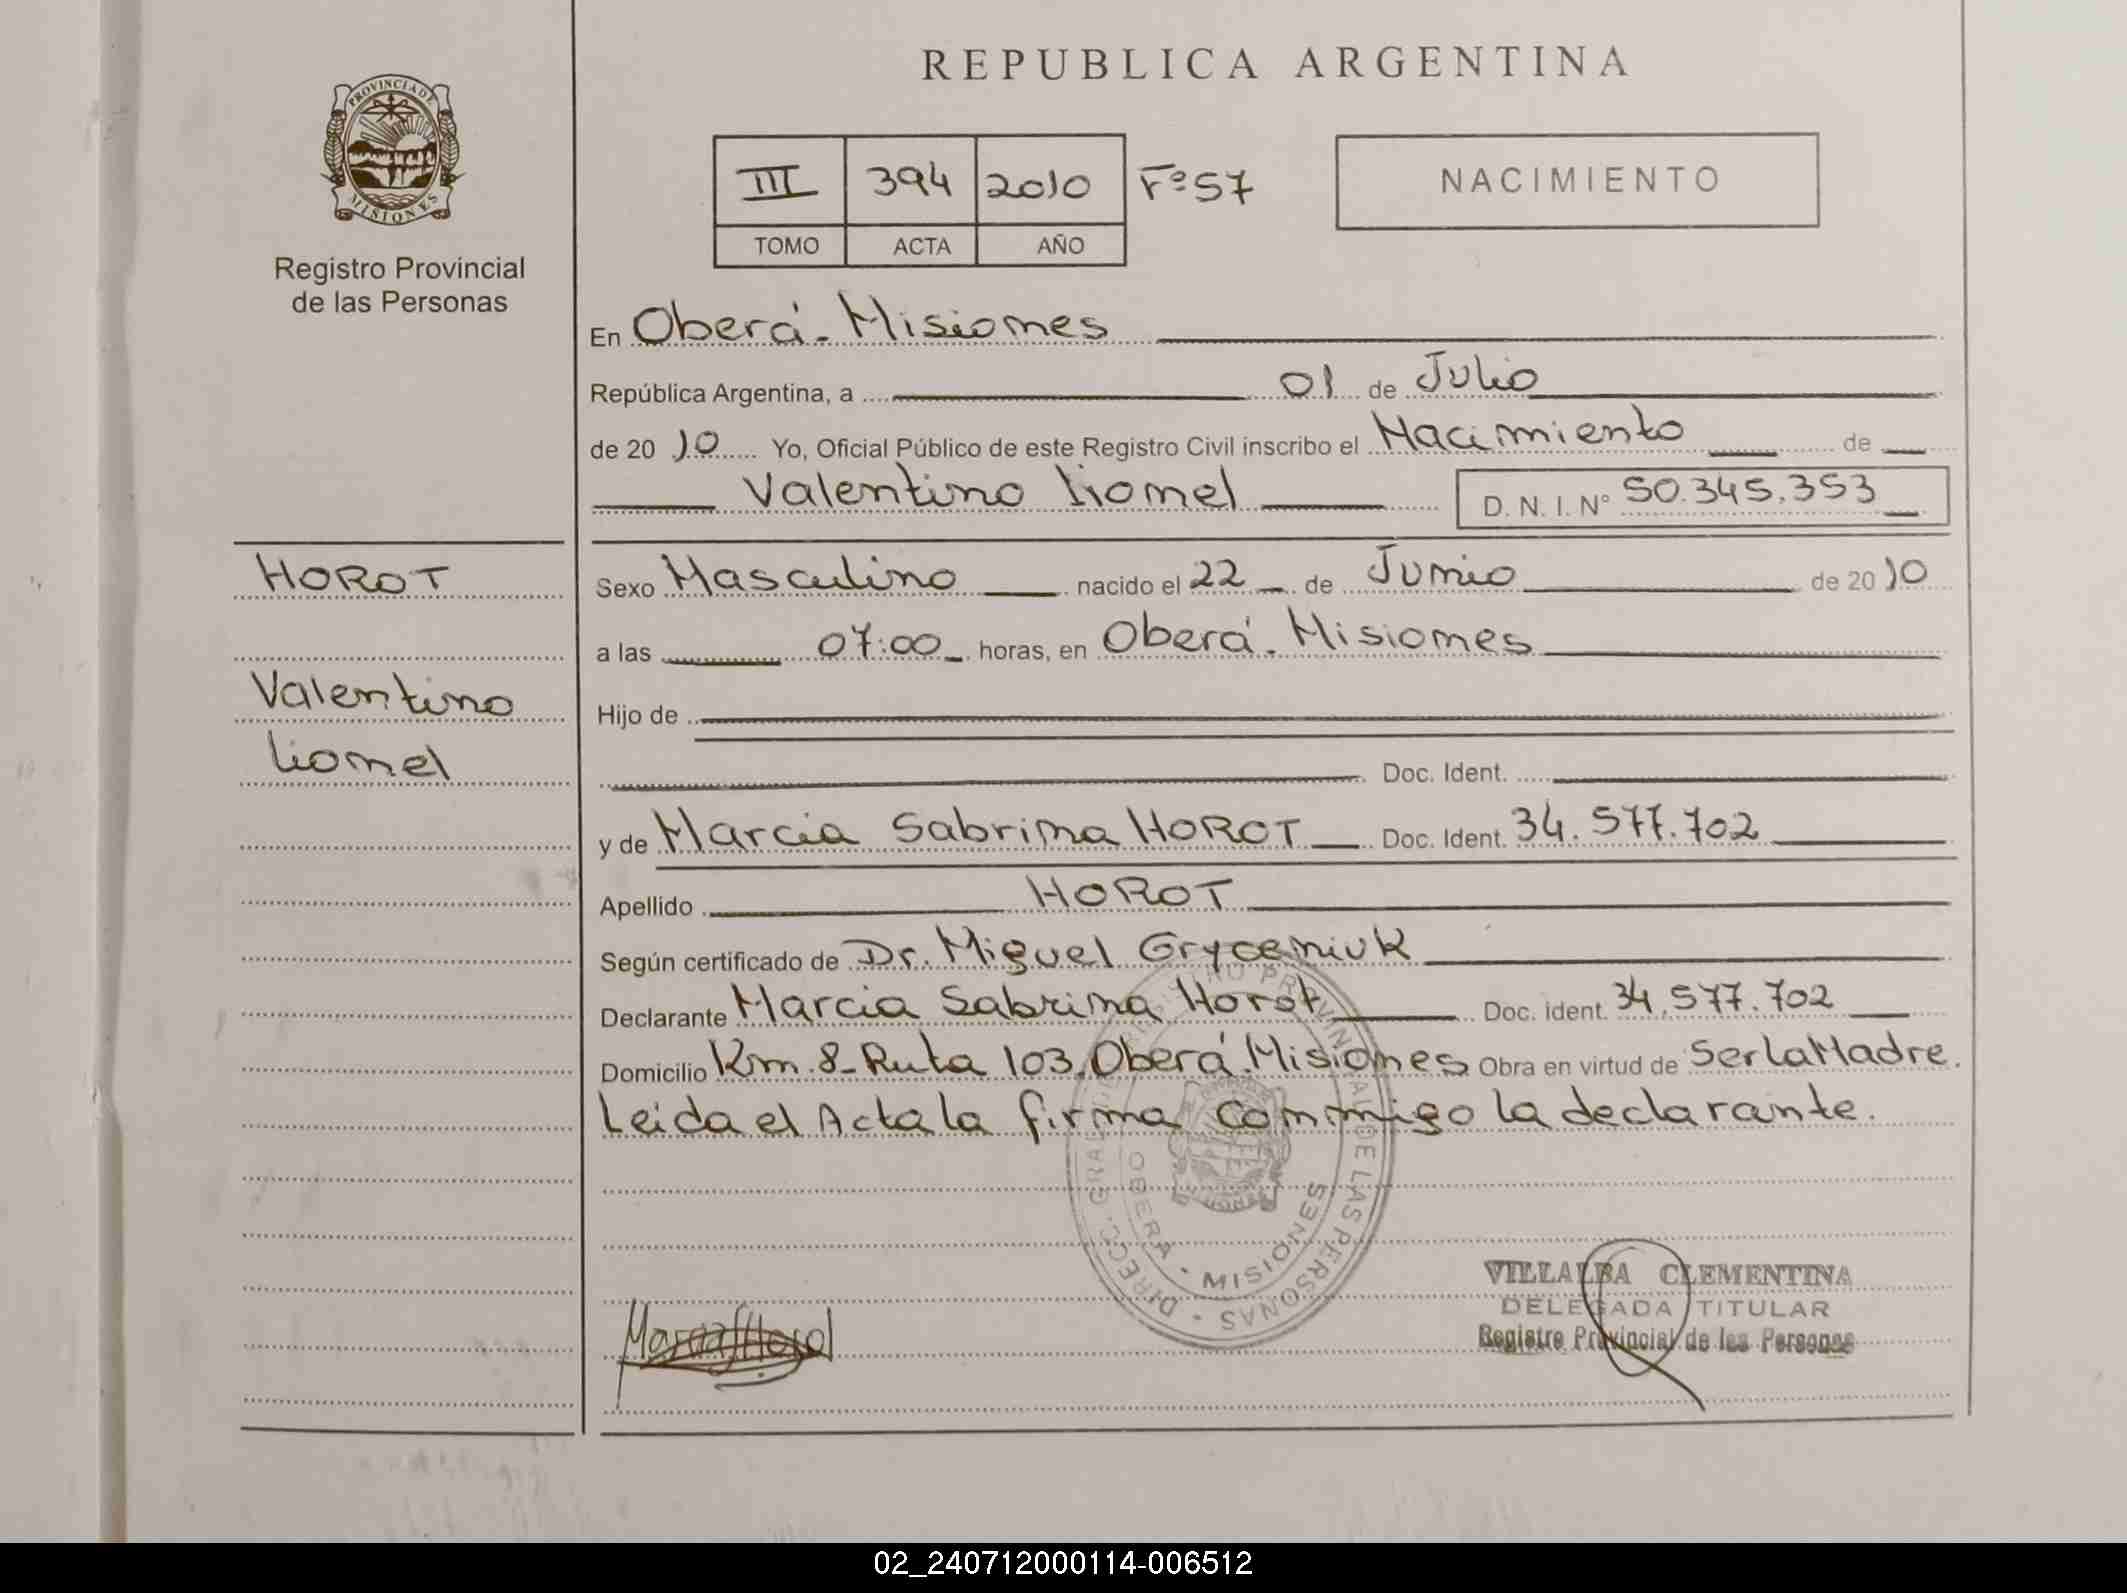 REPUBLICA ARGENTINA
PROVINCIA DE MISIONES
Registro Provincial
de las Personas
III 394 2010 Fº 57
TOMO ACTA AÑO
NACIMIENTO
En Oberá - Misiones
República Argentina, a 01 de Julio
de 2010 Yo, Oficial Público de este Registro Civil inscribo el Nacimiento de
Valentino Lionel D. N. I. Nº 50.345.353
HOROT
Valentino
Lionel
Sexo Masculino nacido el 22 de Junio de 2010
a las 07:00 horas, en Oberá - Misiones
Hijo de
Doc. Ident.
y de Marcia Sabrina HOROT Doc. Ident. 34.577.702
Apellido HOROT
Según certificado de Dr. Miguel Gryceniuk
Declarante Marcia Sabrina Horot Doc. ident. 34.577.702
Domicilio Km. 8 - Ruta 103. Oberá. Misiones Obra en virtud de Ser la Madre.
Leida el Acta la firma conmigo la declarante.
DIRECC. GRAL. DEL REGISTRO PROVINCIAL DE LAS PERSONAS
OBERA - MISIONES
VILLALBA CLEMENTINA
DELEGADA TITULAR
Registro Provincial de las Personas
02_240712000114-006512